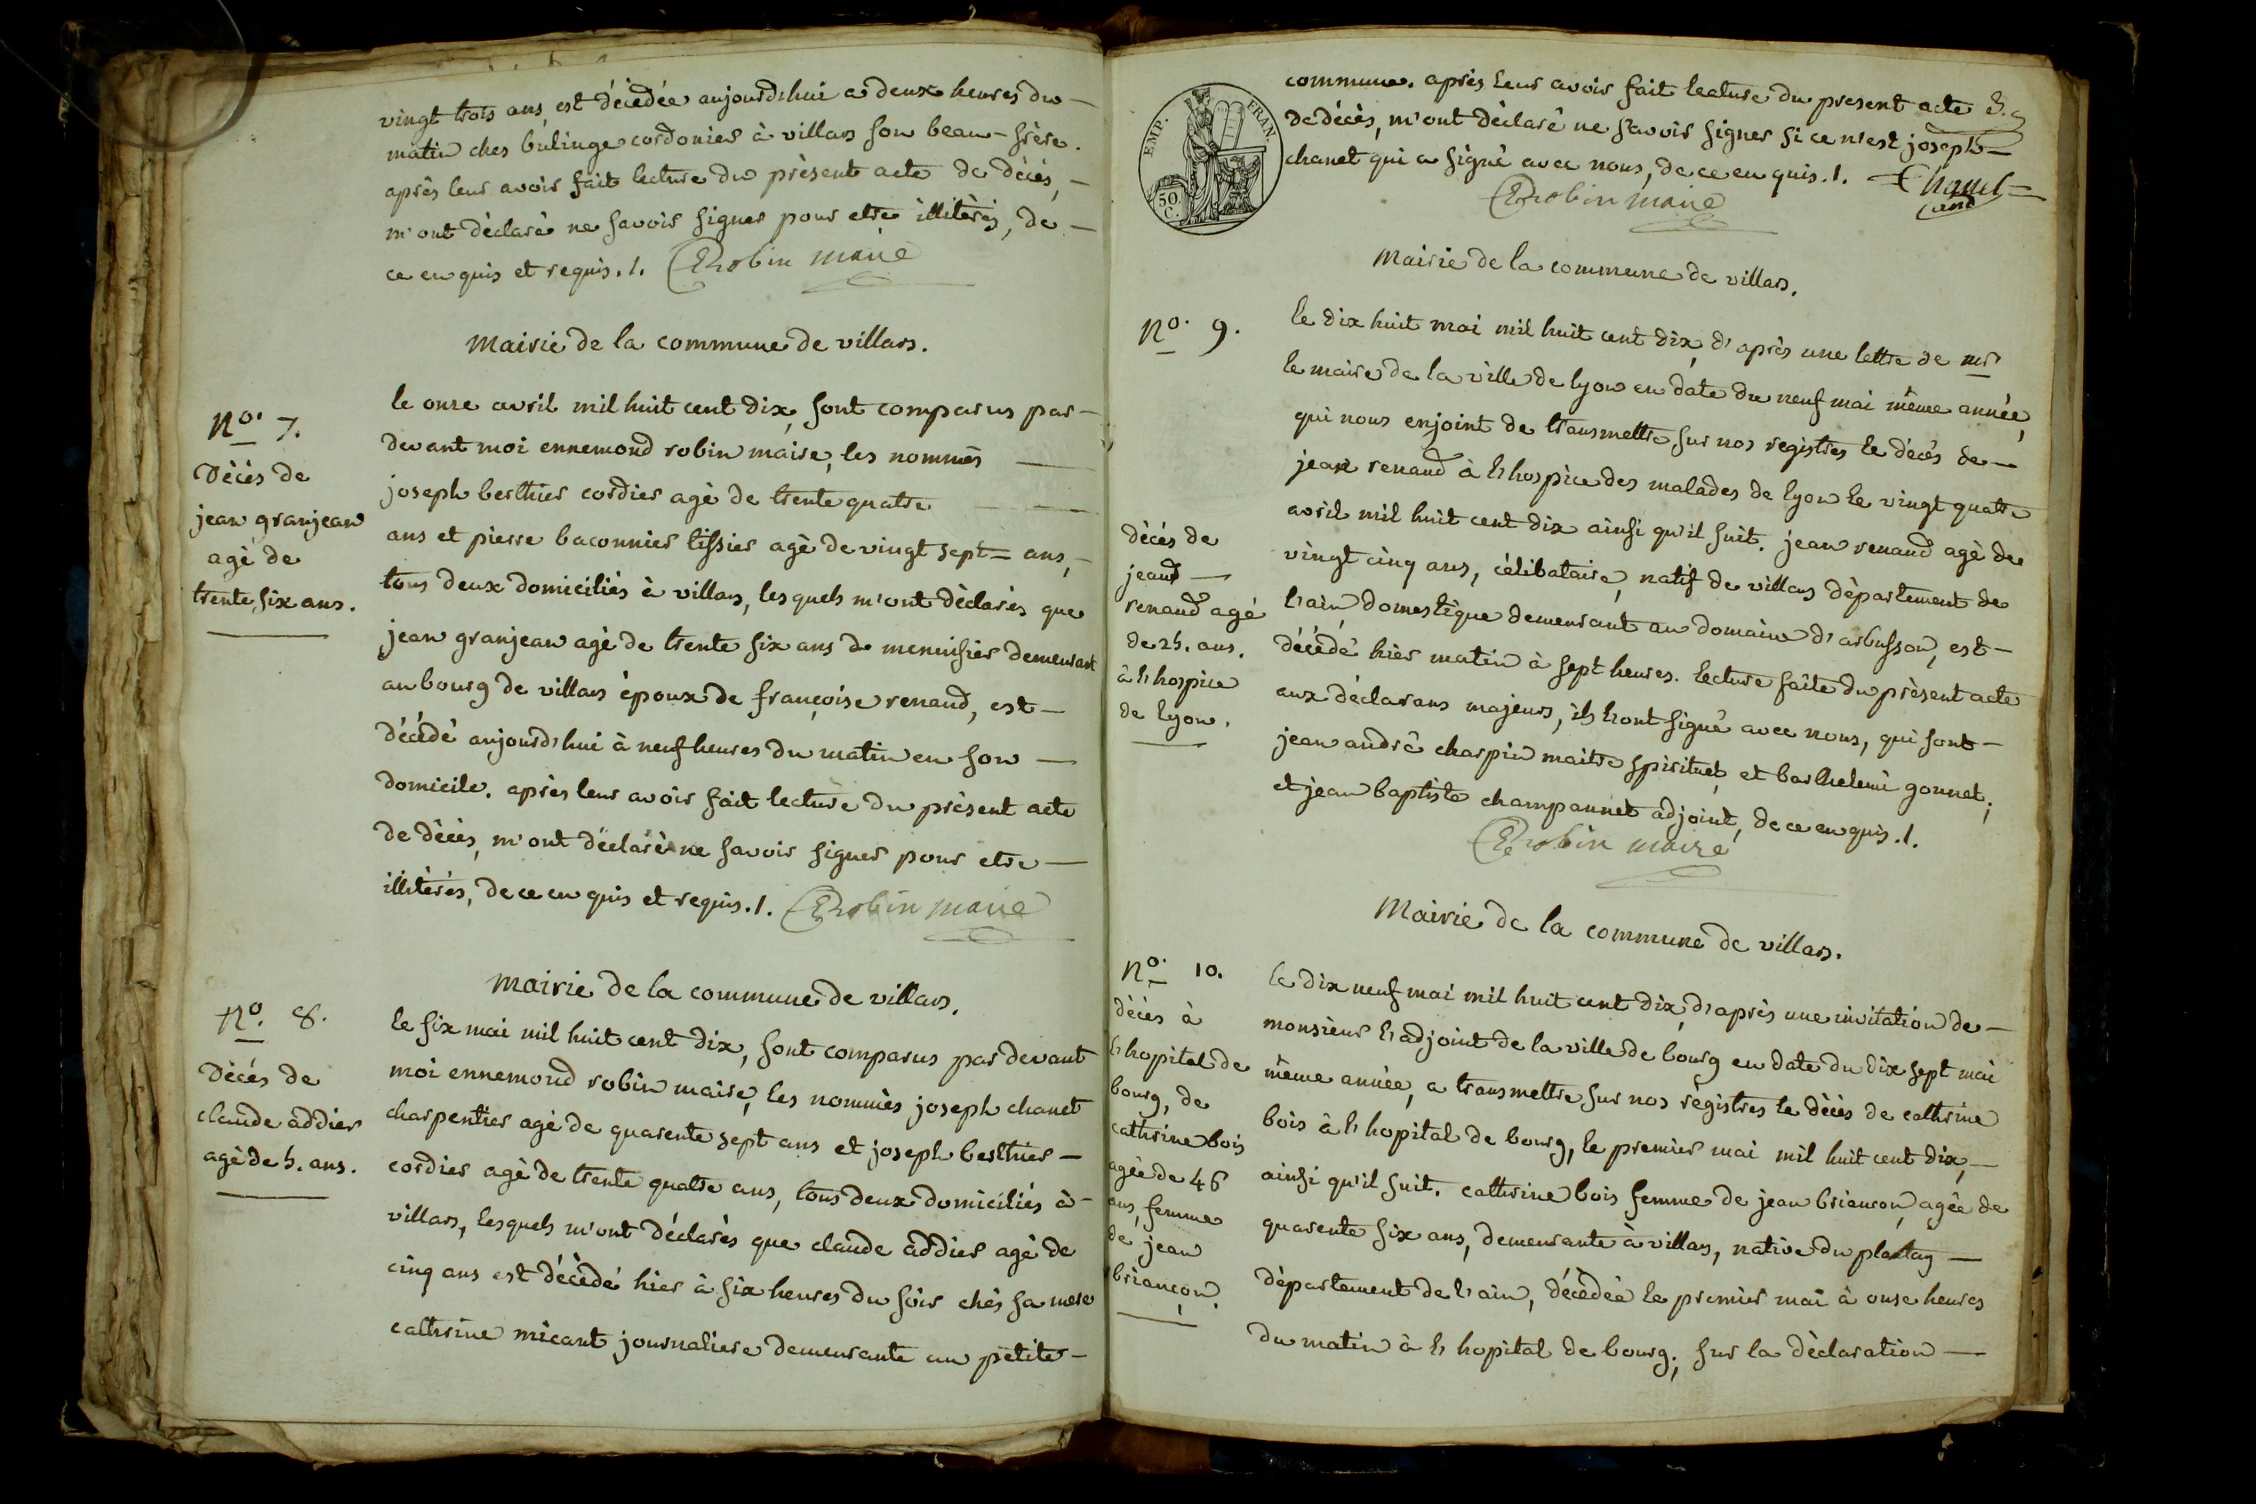 vingt trois ans, est décédée aujourd'hui a deux heures du -
matin ches bulinge cordonier à villars son beau-frère.
après leur avoir fait lecture du présent acte de décés, -
m'ont déclaré ne savoir signer pour etre illitèrés, de -
ce en quis et requis. /. ERobin maire
mairie de la commune de villars.
No. 7.
Décès de
jean granjean
agé de
trente six ans.
le onze avril mil huit cent dix, sont comparus par-
devant moi ennemond robin maire, les nommés —
joseph berthier cordier agé de trente quatre —
ans et pierre baconnier tissier agè de vingt sept = ans, -
tous deux domiciliés à villars, lesquels m'ont déclarés que
jean granjean agé de trente six ans de menuisier demeurant
au bourg de villars époux de françoise renaud, est —
décédé aujourd'hui à neuf heures du matin en son —
domicile. après leur avoir fait lecture du présent acte
de décès, m'ont déclaré ne savoir signer pour etre —
illitèrés, de ce en quis et requis. /. ERobin maire
mairie de la commune de villars.
No. 8.
Décés de
claude addier
agé de 5. ans.
le six mai mil huit cent dix, sont comparus par devant
moi ennemond robin maire, les nommés joseph chanet
charpentier agé de quarente sept ans et joseph berthier —
cordier agé de trente quatre ans, tous deux domiciliés à -
villars, lesquels m'ont déclarés que claude addier agé de
cinq ans est décédé hier à six heures du soir chés sa mere
cathrine micant journaliere demeurante au petite -
EMP. FRAN.
50 C.
commune. après leur avoir fait lecture du present acte
de décès, m'ont déclaré ne savoir signer si ce n'est joseph -
chanet qui a signé avec nous, de ce en quis. /. Chanet
ERobin maire
mairie de la commune de villars.
No. 9.
décés de
jean —
renaud agé
de 25. ans.
à l'hospice
de lyon.
le dix huit mai mil huit cent dix, d'après une lettre de mr
le maire de la ville de lyon en date du neuf mai même année,
qui nous enjoint de transmettre sur nos registres le décés de —
jean renaud à l'hospice des malades de lyon le vingt quatre
avril mil huit cent dix ainsi qu'il suit. jean renaud agé de
vingt cinq ans, célibataire, natif de villars département de
l'ain, domestique demeurant au domaine d'arbusson, est —
décédé hier matin à sept heures. lecture faite du présent acte
aux déclarans majeurs, ils l'ont signé avec nous, qui sont —
jean andré charpin maitre spirituel, et barthelemi gonnet,
et jean baptiste champannet adjoint, de ce en quis. /.
ERobin maire
Mairie de la commune de villars.
No. 10.
décés à
l'hopital de
bourg, de
cathrine bois
agée de 46
ans, femme
de jean
briançon.
le dix neuf mai mil huit cent dix, d'après une invitation de —
monsieur l'adjoint de la ville de bourg en date du dix sept mai
même année, a transmettre sur nos régistres le décés de cathrine
bois à l'hopital de bourg, le premier mai mil huit cent dix, —
ainsi qu'il suit. cathrine bois femme de jean briancon, agée de
quarente six ans, demeurante à villars, native du plantay —
département de l'ain, décédée le premier mai à onze heures
du matin à l'hopital de bourg; sur la déclaration —